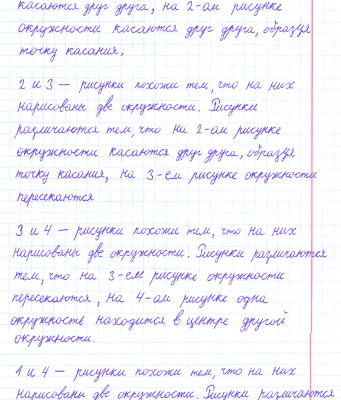 касаются друг друга, на 2-ом рисунке
окружности касаются друг друга, образуя
точку касания.
2 и 3 — рисунки похожи тем, что на них
нарисованы две окружности. Рисунки
различаются тем, что на 2-ом рисунке
окружности касаются друг друга, образуя
точку касания, на 3-ем рисунке окружности
пересекаются
3 и 4 — рисунки похожи тем, что на них
нарисованы две окружности. Рисунки различаются
тем, что на 3-ем рисунке окружности
пересекаются, на 4-ом рисунке одна
окружность находится в центре другой
окружности.
1 и 4 — рисунки похожи тем, что на них
нарисованы две окружности. Рисунки различаются